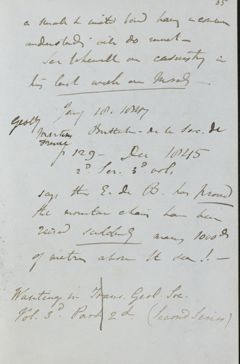 85
a
understands will do
see Whewell on casuistry in
his last work on Morals —
Jany 18. 1847
Geoly
Martins Bullet - de la Soc. de
France
p 129 - Dec 1845
2d. Ser. 3d vol.
says that E. de B. has proved
the mountain chain has been
raised suddenly many 1000ds
of metres above the sea! —
Wanting in Trans. Geol. Soc.
Vol. 3d Part 2d. (Second Series)